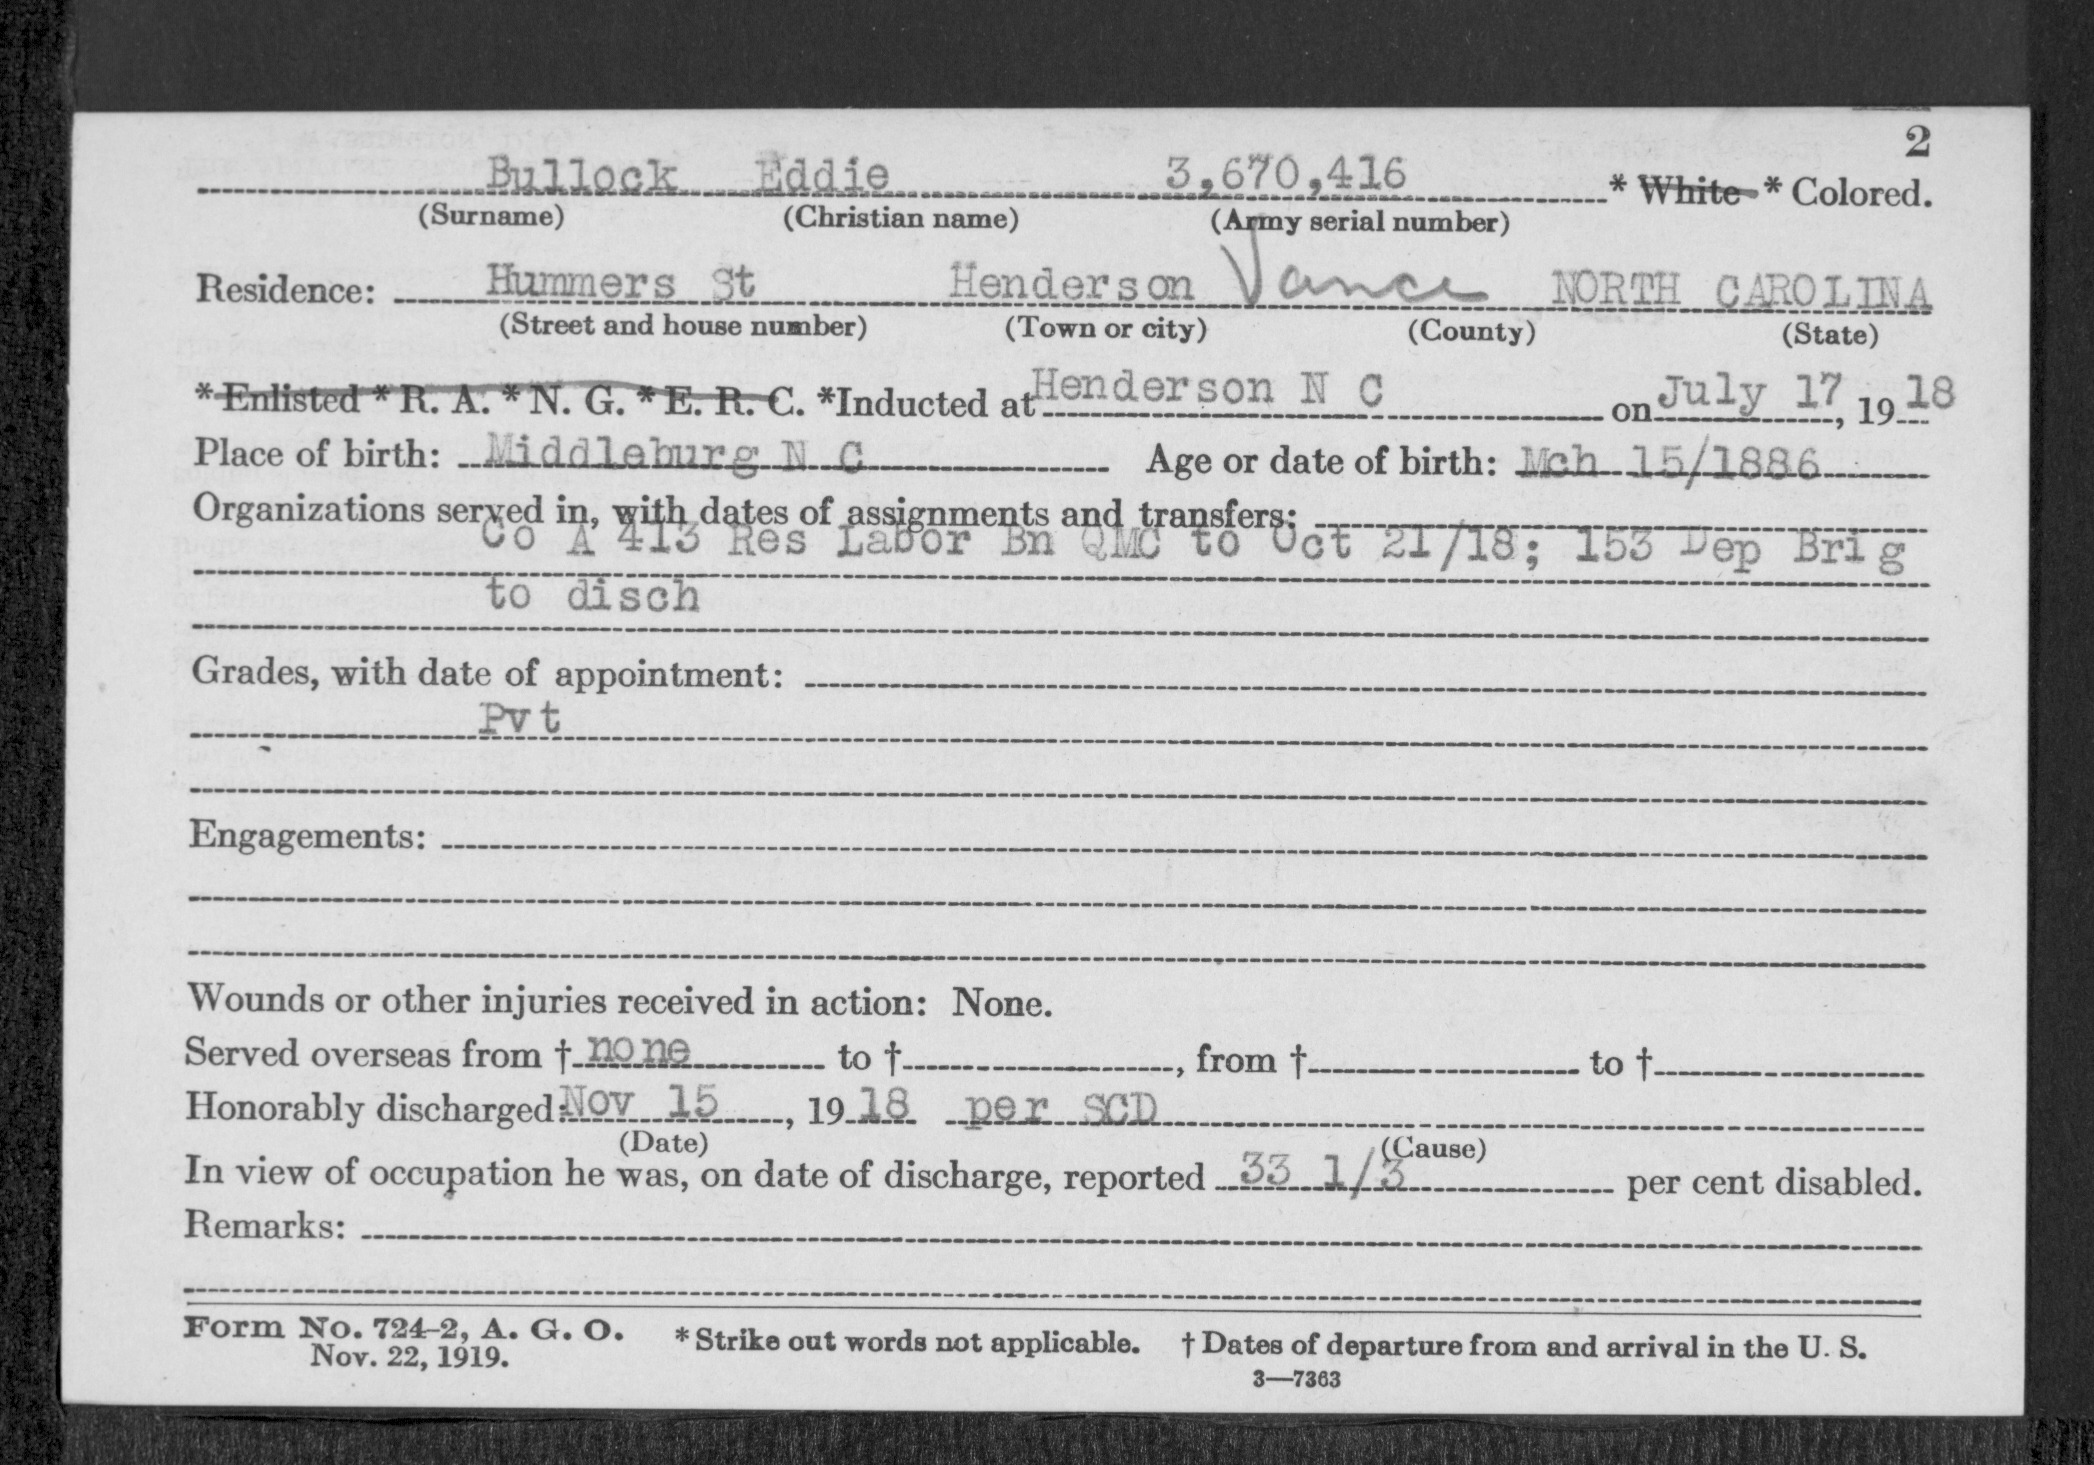 2
Bullock Eddie 3,670,416 * White * Colored.
(Surname) (Christian name) (Army serial number)
Residence: Hummers St Henderson Vance NORTH CAROLINA
(Street and house number) (Town or city) (County) (State)
*Enlisted *R. A. *N. G. *E. R. C. *Inducted at Henderson N C on July 17, 1918
Place of birth: Middleburg N C Age or date of birth: Mch 15/1886
Organizations served in, with dates of assignments and transfers:
Co A 413 Res Labor Bn QMC to Oct 21/18; 153 Dep Brig
to disch
Grades, with date of appointment:
Pvt
Engagements:
Wounds or other injuries received in action: None.
Served overseas from † none to †, from † to †
Honorably discharged: Nov 15, 1918 per SCD
(Date) (Cause)
In view of occupation he was, on date of discharge, reported 33 1/3 per cent disabled.
Remarks:
Form No. 724-2, A. G. O. *Strike out words not applicable. †Dates of departure from and arrival in the U. S.
Nov. 22, 1919.
3—7363